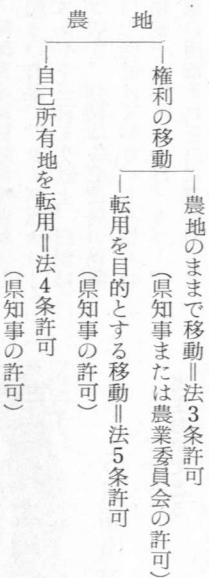 農地
権利の移動
農地のままで移動＝法3条許可
（県知事または農業委員会の許可）
転用を目的とする移動＝法5条許可
（県知事の許可）
自己所有地を転用＝法4条許可
（県知事の許可）